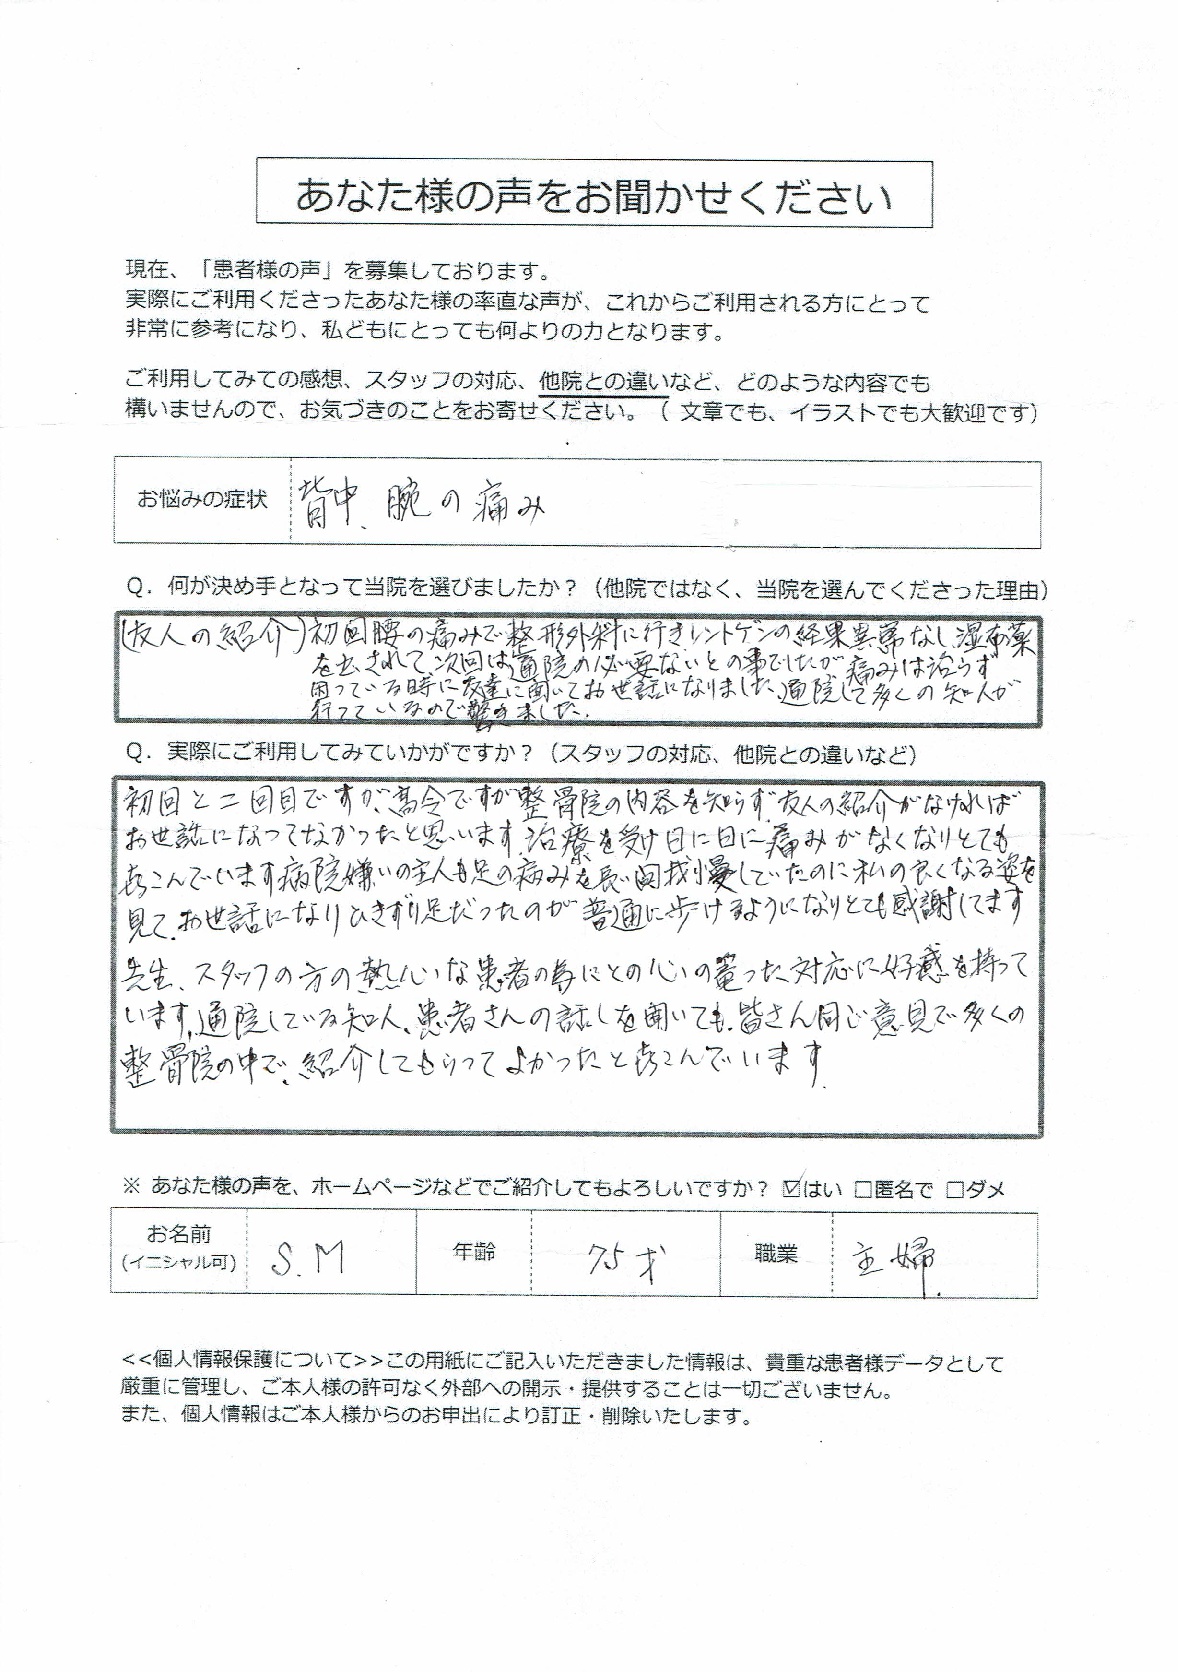 あなた様の声をお聞かせください
現在、「患者様の声」を募集しております。
実際にご利用くださったあなた様の率直な声が、これからご利用される方にとって
非常に参考になり、私どもにとっても何よりの力となります。
ご利用してみての感想、スタッフの対応、他院との違いなど、どのような内容でも
構いませんので、お気づきのことをお寄せください。（ 文章でも、イラストでも大歓迎です）
お悩みの症状
背中、腕の痛み
Q．何が決め手となって当院を選びましたか？（他院ではなく、当院を選んでくださった理由）
(友人の紹介)初回腰の痛みで整形外科に行きレントゲンの結果異常なし湿布薬
を出されて、次回は通院の必要ないとの事でしたが痛みは治らず
困っている時に友達に聞いてお世話になりました、通院して多くの知人が
行っているので驚きました.
Q．実際にご利用してみていかがですか？（スタッフの対応、他院との違いなど）
初回と二回目ですが、高令ですが整骨院の内容を知らず、友人の紹介がなければ
お世話になってなかったと思います、治療を受け日に日に痛みがなくなりとても
喜こんでいます病院嫌いの主人も足の痛みを長い間我慢していたのに私の良くなる姿を
見て、お世話になりひきずり足だったのが普通に歩けるようになりとても感謝してます
先生、スタッフの方の熱心な患者の為にとの心の篭った対応に好感を持って
います、通院している知人、患者さんの話しを聞いても、皆さん同じ意見で多くの
整骨院の中で、紹介してもらってよかったと喜こんでいます.
※ あなた様の声を、ホームページなどでご紹介してもよろしいですか？ ☑はい □匿名で □ダメ
お名前
(イニシャル可)
S.M
年齢
75才
職業
主婦.
<<個人情報保護について>>この用紙にご記入いただきました情報は、貴重な患者様データとして
厳重に管理し、ご本人様の許可なく外部への開示・提供することは一切ございません。
また、個人情報はご本人様からのお申出により訂正・削除いたします。